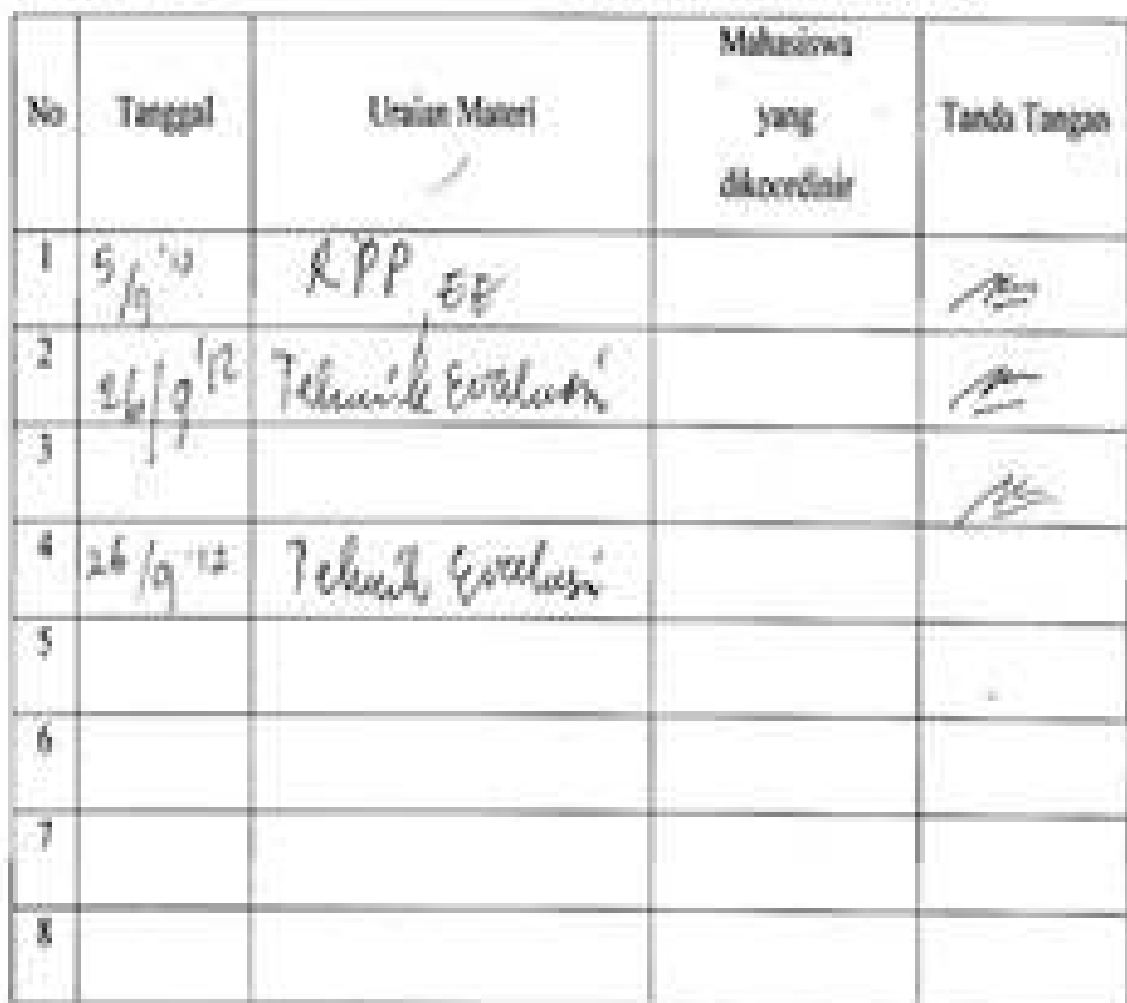 No Tanggal Uraian Materi Mahasiswa yang dikoordinir Tanda Tangan
1 5/9 '12 RPP
2 /9 '12 Teknik Evaluasi
3
4 26/9 '12 Teknik Evaluasi
5
6
7
8